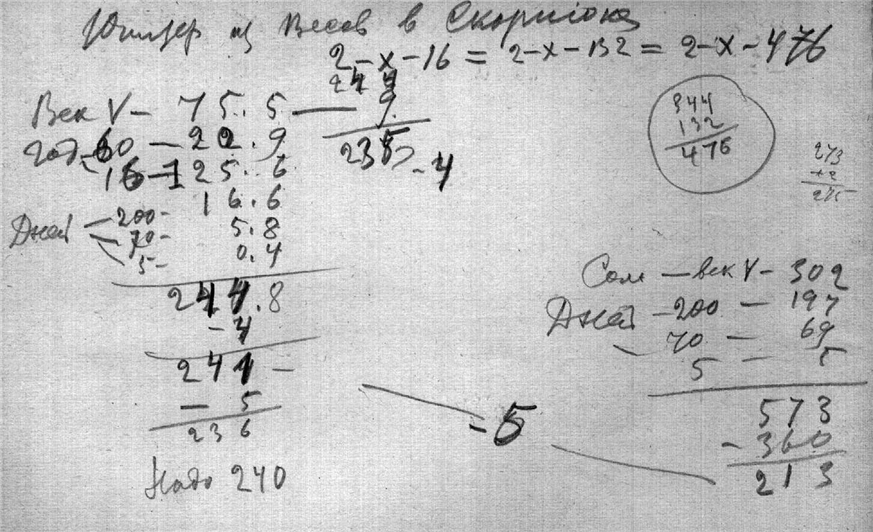 Юпитер из Весов в Скорпиона
2-х-16 = 2-х-132 = 2-х-476
244
Век V - 75.5 — 9
год 60 - 22.9
235 - 4
16 - 125.6
16.6
Дней - 200 -
70 - 5.8
5 - 0.4
244.8
- 4
241 -
- 5
236
Надо 240
- 5
344
132
476
273
+2
275
Солн — век V - 302
Дней - 200 - 197
70 - 69
5 - 5
573
- 360
213